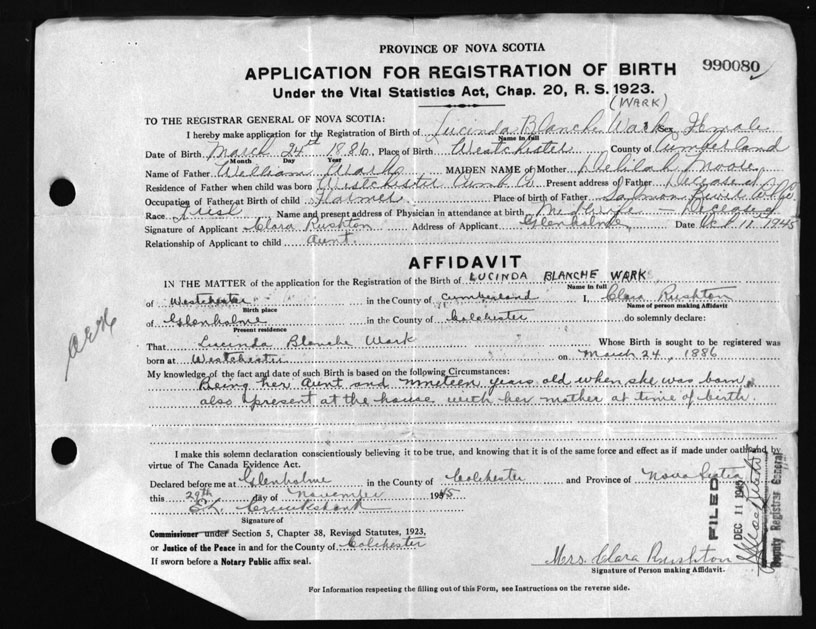 PROVINCE OF NOVA SCOTIA
990080
APPLICATION FOR REGISTRATION OF BIRTH
Under the Vital Statistics Act, Chap. 20, R. S. 1923.
(WARK)
TO THE REGISTRAR GENERAL OF NOVA SCOTIA:
I hereby make application for the Registration of Birth of Lucinda Blanche Wark Sex Female
Name in full
Date of Birth March 24th 1886 Place of Birth Westchester County of Cumberland
Month Day Year
Name of Father William Wark MAIDEN NAME of Mother Delilah Moore
Residence of Father when child was born Westchester Cumb Co Present address of Father Deceased
Occupation of Father at Birth of Child Farmer Place of birth of Father Salmon River Col Co.
Race Name and present address of Physician in attendance at birth Midwife - Deceased
Signature of Applicant Clara Rushton Address of Applicant Glenholme Date 11 1945
Relationship of Applicant to child aunt
AFFIDAVIT
IN THE MATTER of the application for the Registration of the Birth of LUCINDA BLANCHE WARK
Name in full
of Westchester in the County of Cumberland I, Clara Rushton
Birth place Name of person making Affidavit
of Glenholme in the County of Colchester do solemnly declare:
Present residence
That Lucinda Blanche Wark Whose Birth is sought to be registered was
born at Westchester on March 24, 1886
My knowledge of the fact and date of such Birth is based on the following Circumstances:
Being her Aunt and nineteen years old when she was born
also present at the house with her mother at time of birth.
I make this solemn declaration conscientiously believing it to be true, and knowing that it is of the same force and effect as if made under oath and by
virtue of The Canada Evidence Act.
Declared before me at Glenholme in the County of Colchester and Province of Nova Scotia
this 29th day of November 1945
Cruikshank
Signature of
Commissioner under Section 5, Chapter 38, Revised Statutes, 1923,
or Justice of the Peace in and for the County of Colchester
If sworn before a Notary Public affix seal.
Mrs. Clara Rushton
Signature of Person making Affidavit.
FILED
DEC 11 1945
Deputy Registrar General
For Information respecting the filling out of this Form, see Instructions on the reverse side.